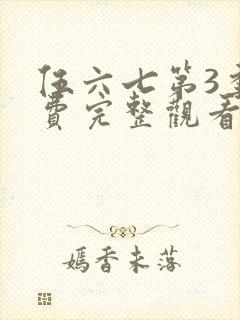 伍六七第3季
費完整觀看
嫣香未落